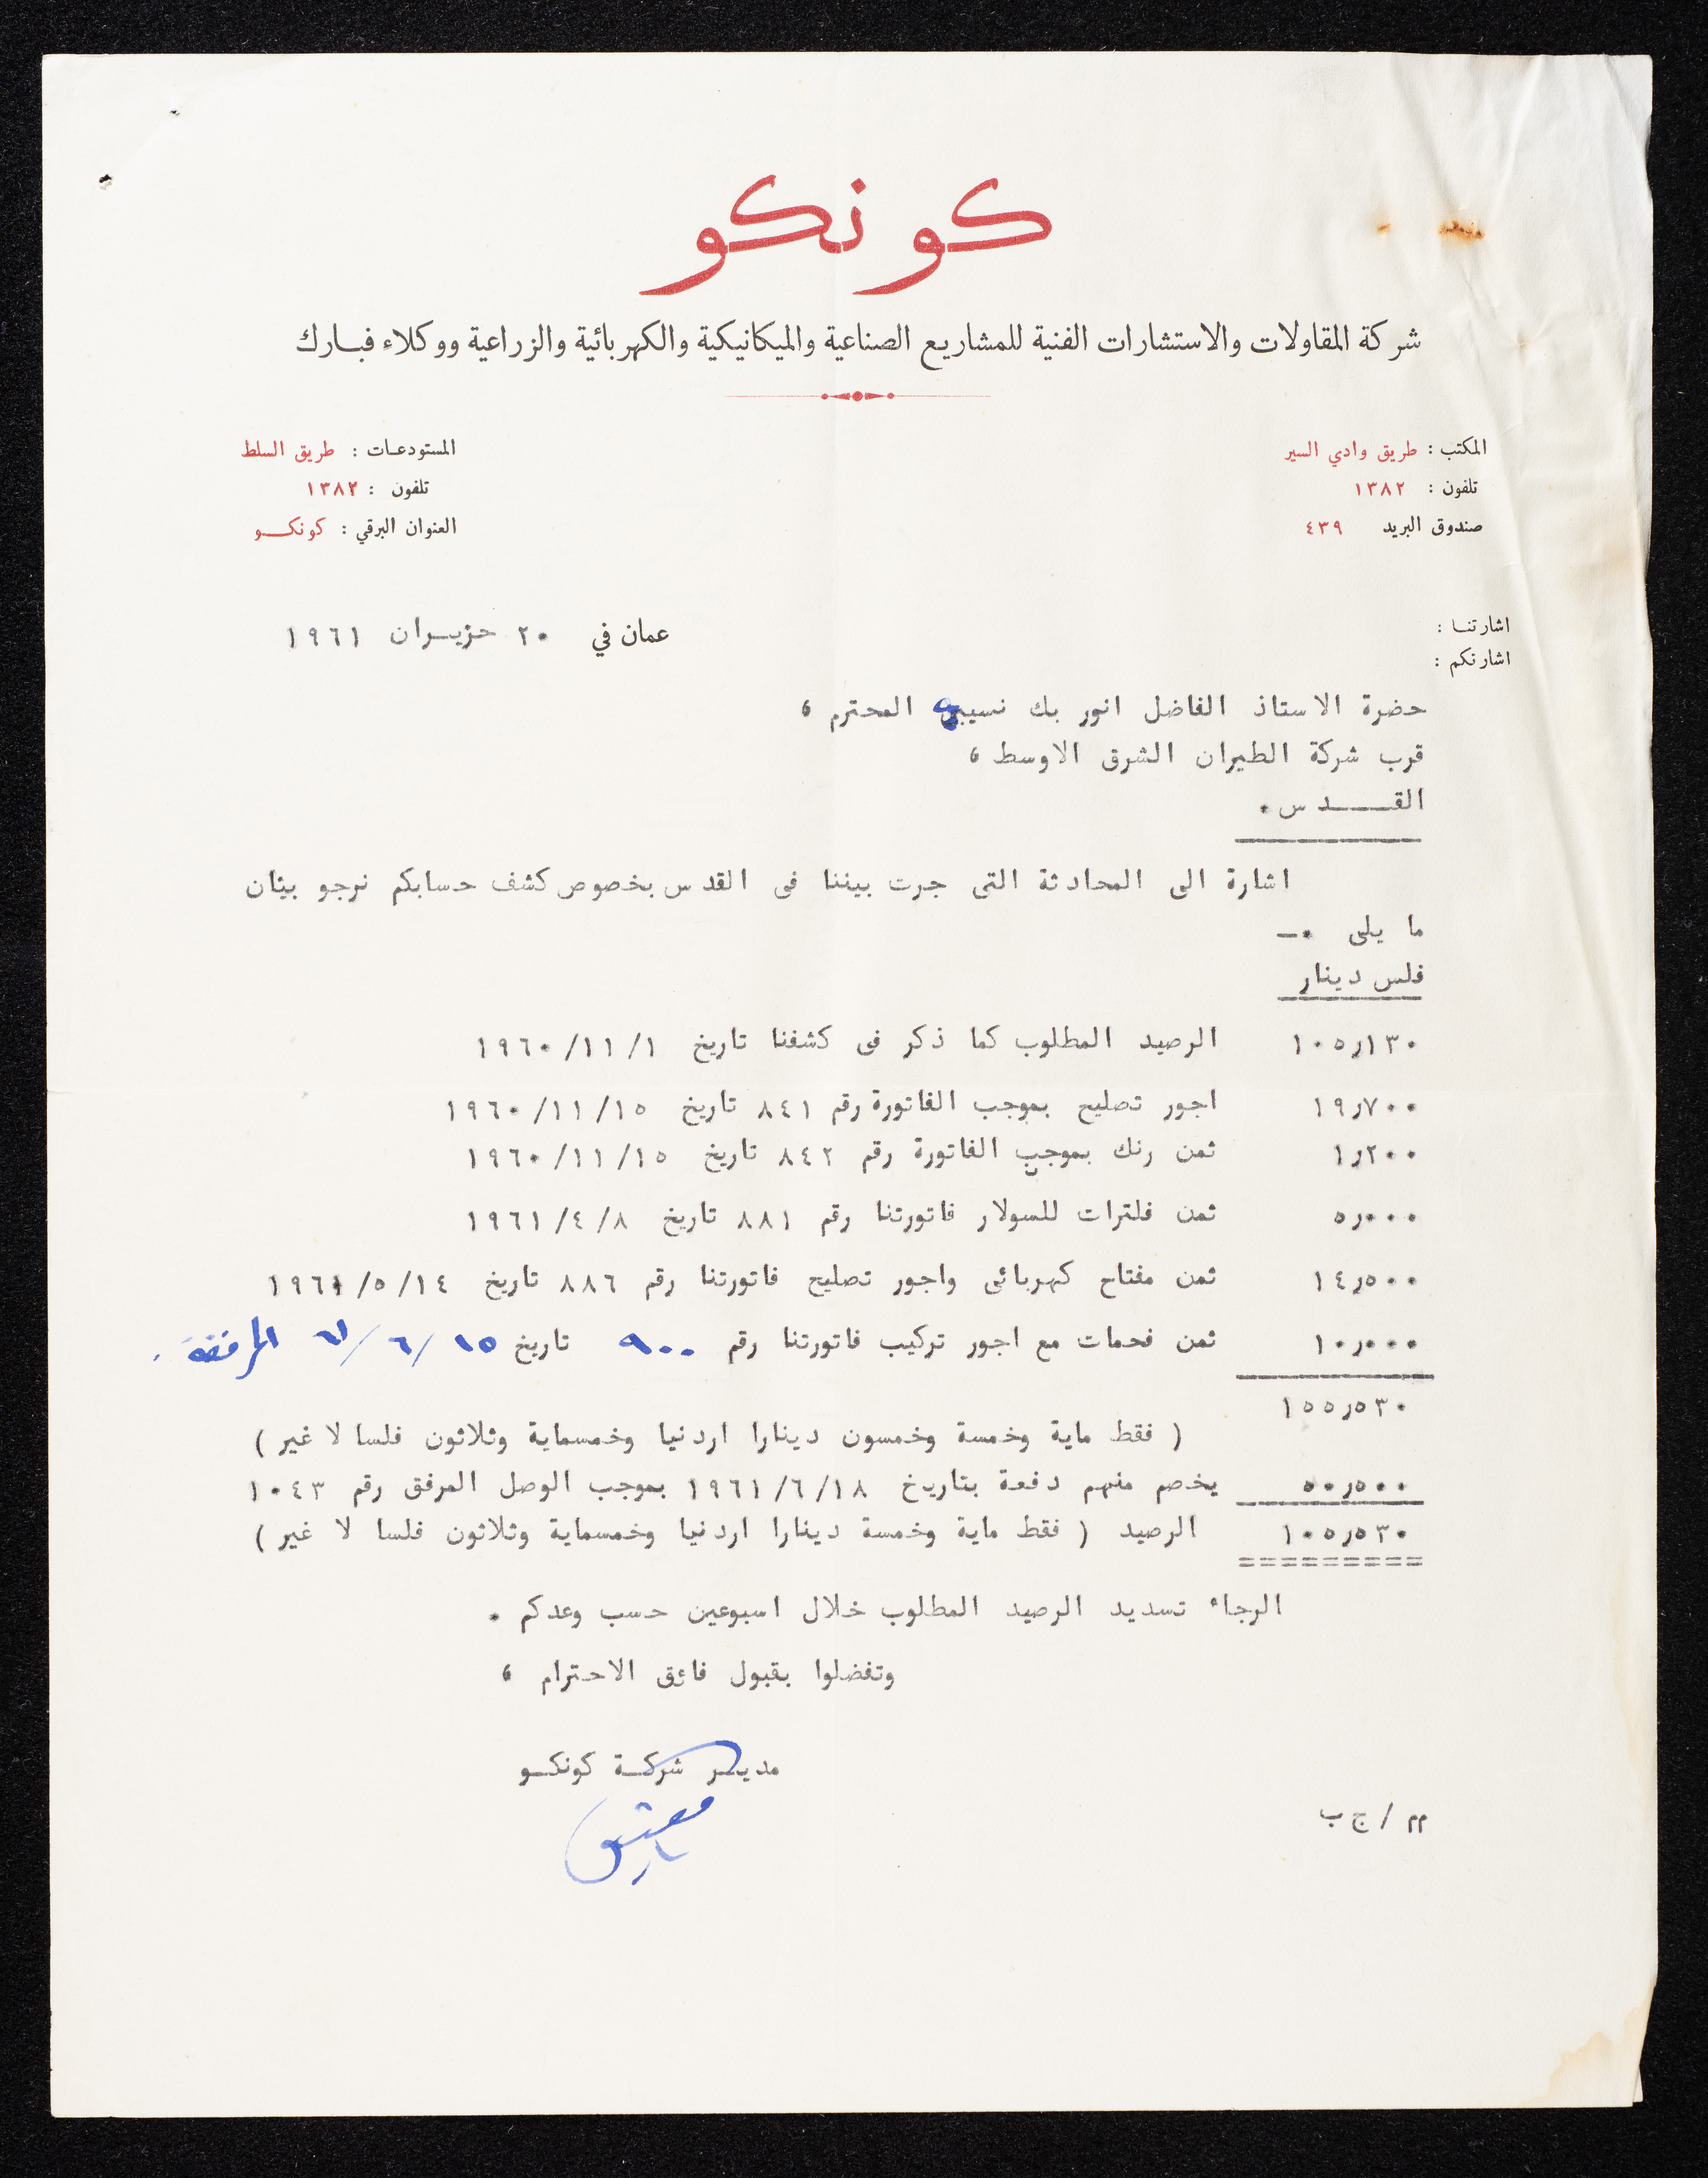 كونكو
شركة المقاولات والاستشارات الفنية للمشاريع الصناعية والميكانيكية والكهربائية والزراعية ووكلاء فبارك
المكتب : طريق وادي السير
تلفون : ١٣٨٢
صندوق البريد ٤٣٩
المستودعات : طريق السلط
تلفون : ١٣٨٢
العنوان البرقي : كونكو
اشارتنا :
اشارتكم :
عمان في ٢٠ حزيران ١٩٦١
حضرة الاستاذ الفاضل انور بك نسيبه المحترم ،
قرب شركة الطيران الشرق الاوسط ،
القدس.
اشارة الى المحادثة التى جرت بيننا فى القدس بخصوص كشف حسابكم نرجو بيئان
ما يلى .—
فلس دينار
١٠٥ر١٣٠ الرصيد المطلوب كما ذكر فى كشفنا تاريخ ١٩٦٠/١١/١
١٩ر٧٠٠ اجور تصليح بموجب الفاتورة رقم ٨٤١ تاريخ ١٩٦٠/١١/١٥
١ر٢٠٠ ثمن رنك بموجب الفاتورة رقم ٨٤٢ تاريخ ١٩٦٠/١١/١٥
٥ر٠٠٠ ثمن فلترات للسولار فاتورتنا رقم ٨٨١ تاريخ ١٩٦١/٤/٨
١٤ر٥٠٠ ثمن مفتاح كهربائى واجور تصليح فاتورتنا رقم ٨٨٦ تاريخ ١٩٦١/٥/١٤
١٠ر٠٠٠ ثمن فحمات مع اجور تركيب فاتورتنا رقم ٩٠٠ تاريخ ١٥/٦/٦١ المرفقة .
١٥٥ر٥٣٠
( فقط ماية وخمسة وخمسون دينارا اردنيا وخمسماية وثلاثون فلسا لا غير )
٥٠ر٥٠٠ يخصم منهم دفعة بتاريخ ١٩٦١/٦/١٨ بموجب الوصل المرفق رقم ١٠٤٣
١٠٥ر٥٣٠ الرصيد ( فقط ماية وخمسة دينارا اردنيا وخمسماية وثلاثون فلسا لا غير )
=========
الرجاء تسديد الرصيد المطلوب خلال اسبوعين حسب وعدكم .
وتفضلوا بقبول فائق الاحترام ،
مدير شركة كونكو
مم / ج ب